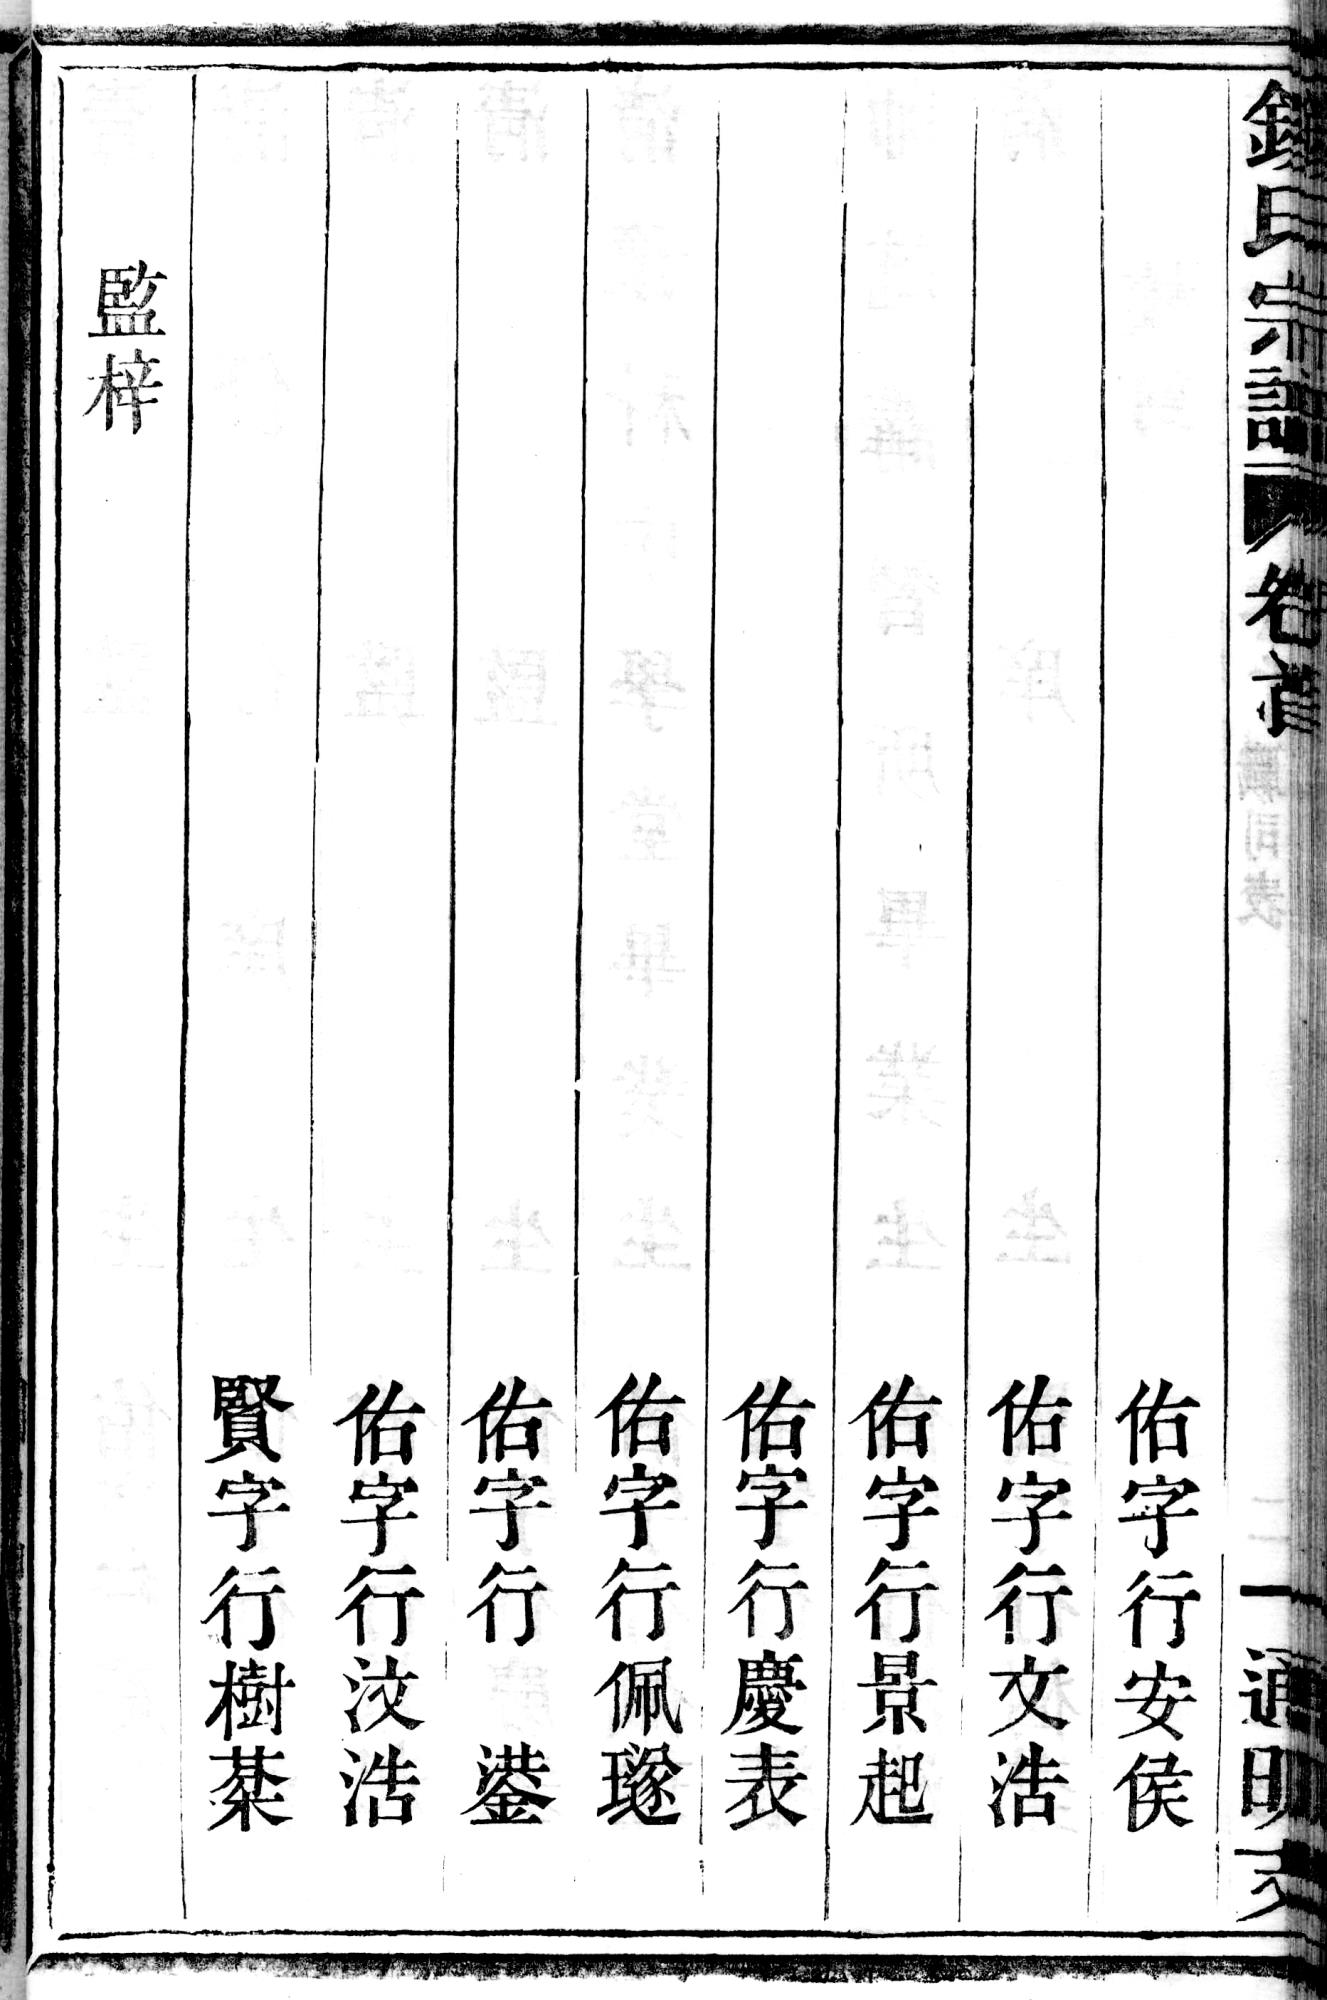 氏宗譜 卷首 一 通明
佑字行安侯
佑字行文浩
佑字行景起
佑字行慶表
佑字行佩璲
佑字行
佑字行汶浩
賢字行樹棻
監梓